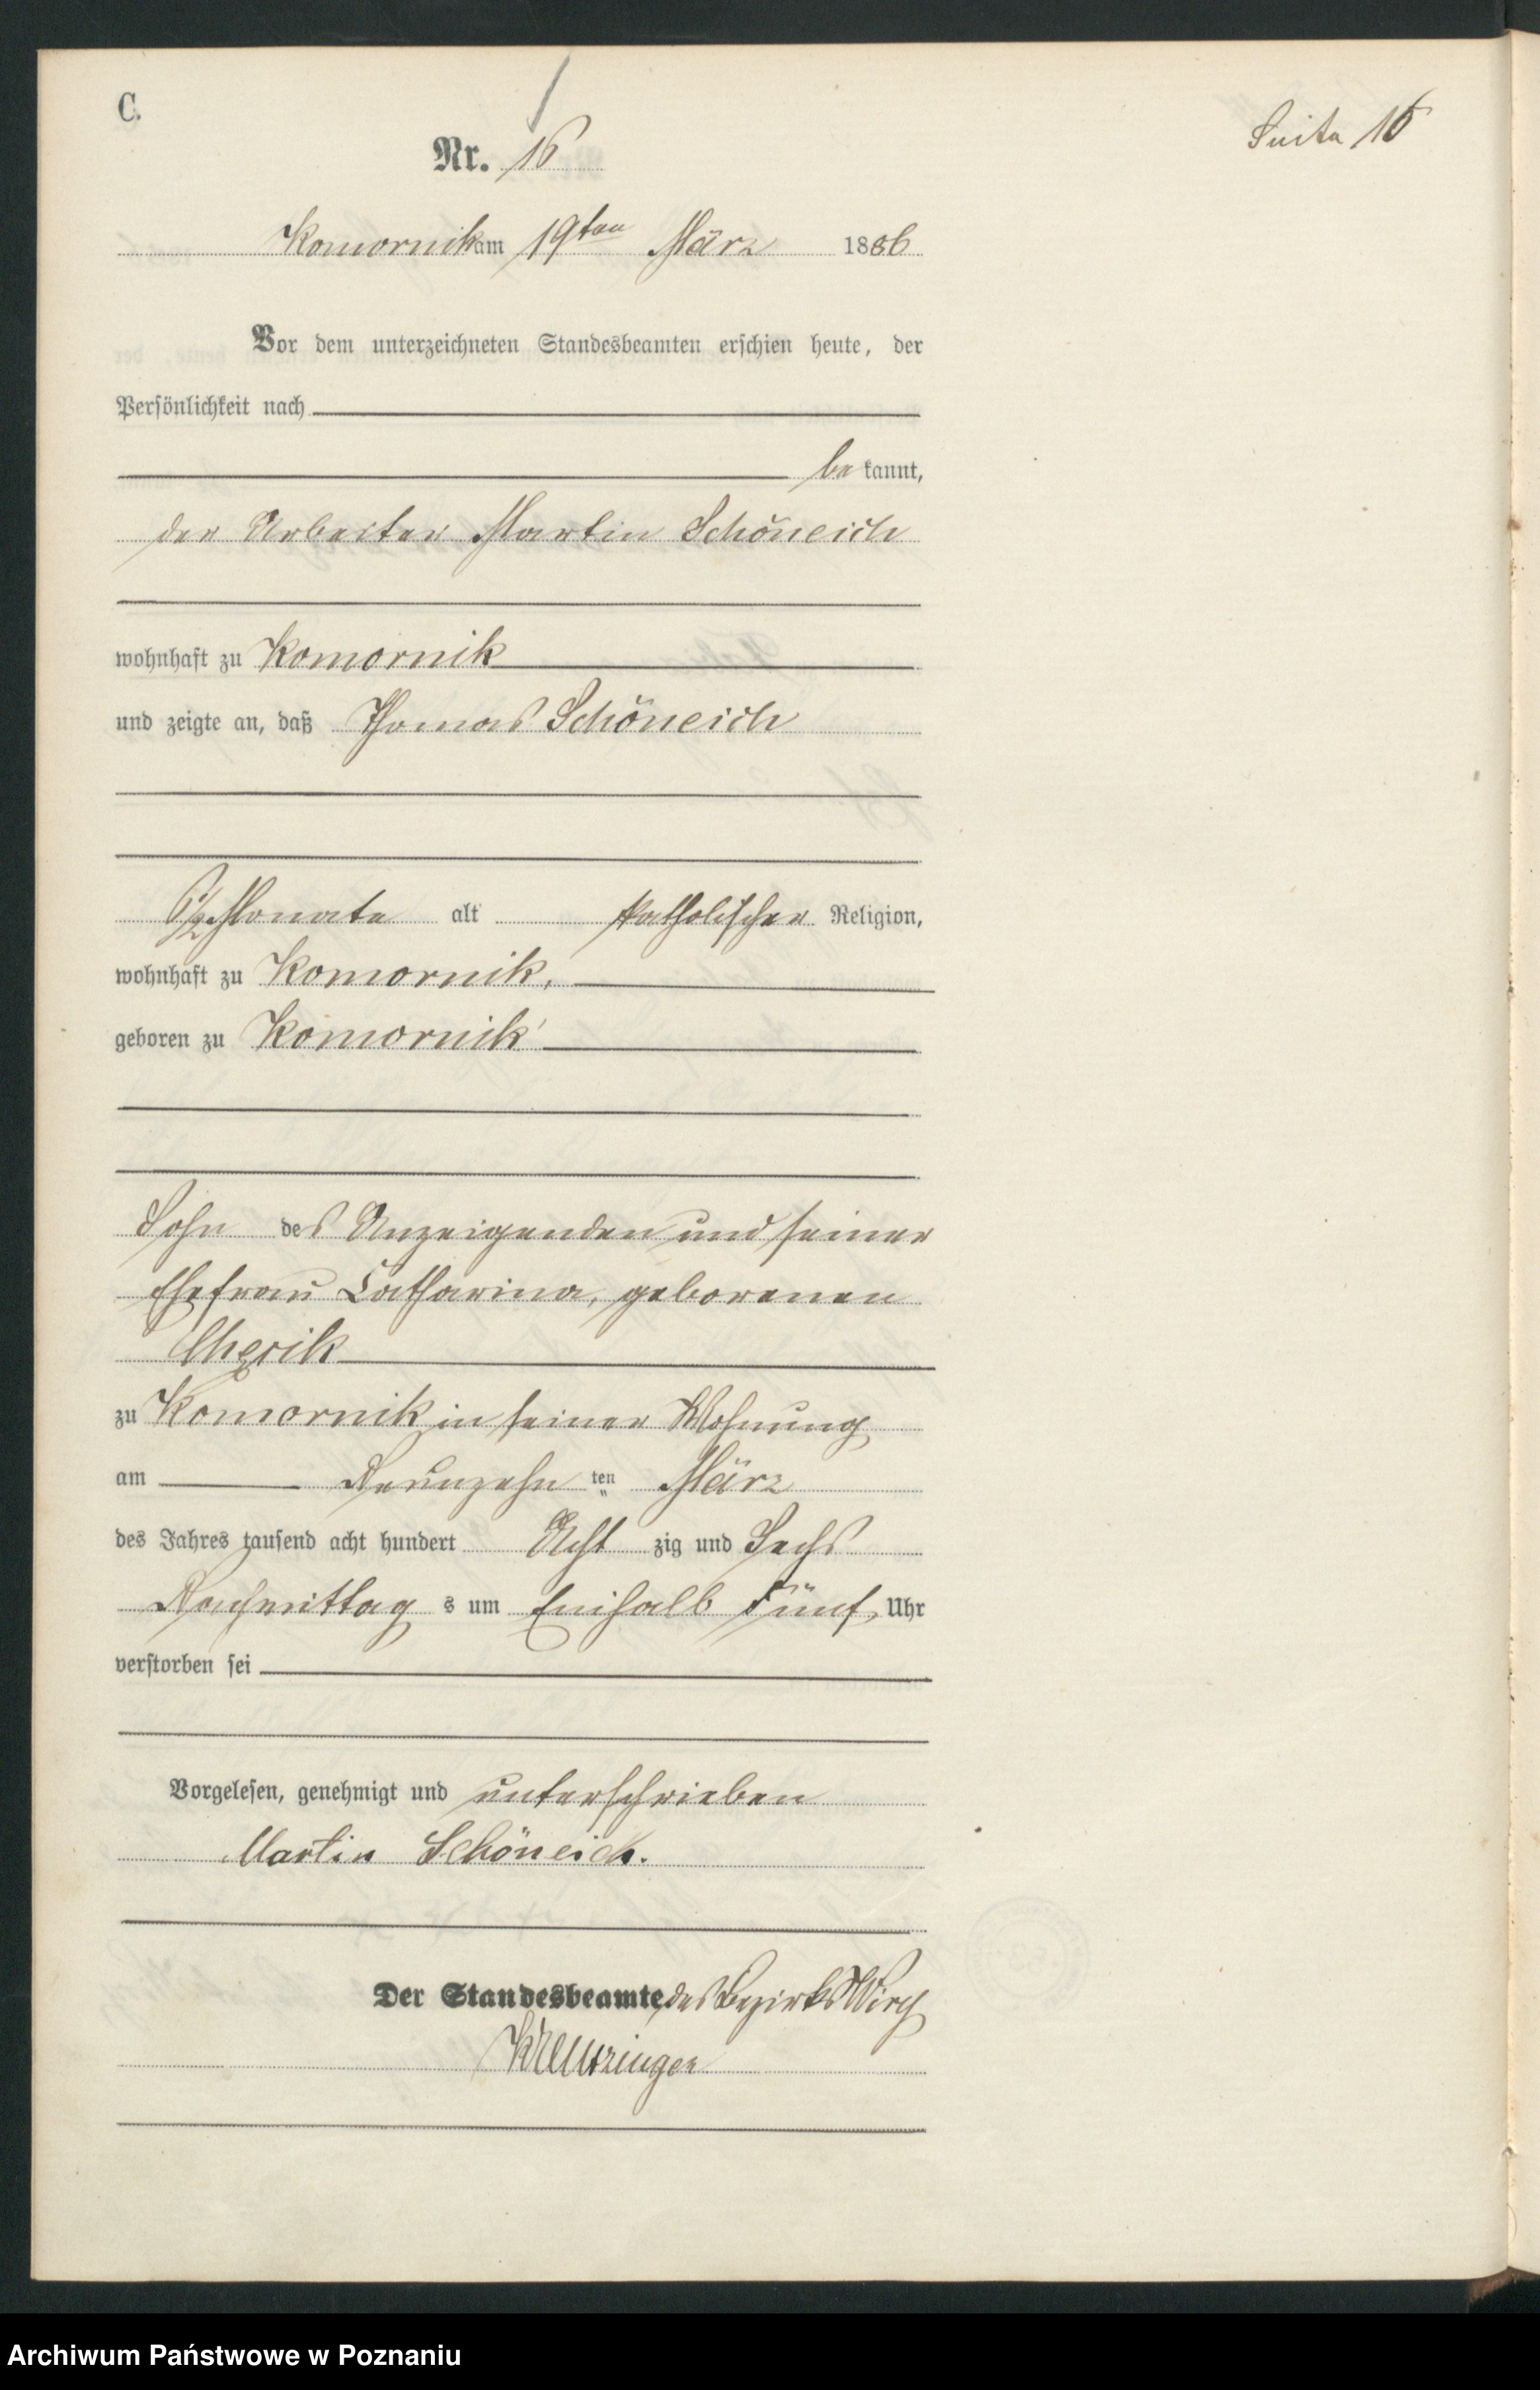 C.
Seite 16
Nr. 16
Komornik am 19ten März 1886
Vor dem unterzeichneten Standesbeamten erschien heute, der
Persönlichkeit nach
be kannt,
der Arbeiter Martin Schöneich
wohnhaft zu Komornik
und zeigte an, daß Thomas Schöneich
6 1/2 Monate alt katholischer Religion,
wohnhaft zu Komornik,
geboren zu Komornik
Sohn des Anzeigenden und seiner
Ehefrau Catharina, geborenen
zu Komornik in seiner Wohnung
am Neunzehn ten März
des Jahres tausend acht hundert Acht zig und Sechs
Nachmittag s um Einhalb Fünf Uhr
verstorben sei
Vorgelesen, genehmigt und unterschrieben
Martin Schöneich.
Der Standesbeamte des Bezirks
Archiwum Państwowe w Poznaniu